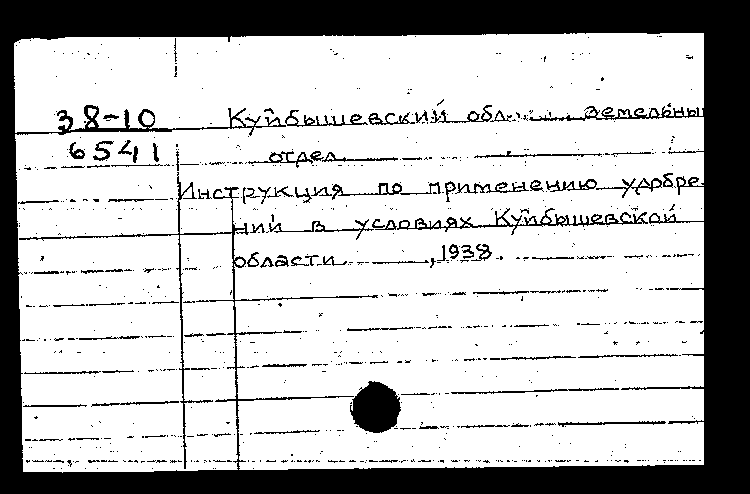 38-10 Куйбышевский обл. земельны
6541 отдел.
Инструкция по применению удобре-
ний в условиях Куйбышевской
области. , 1938.